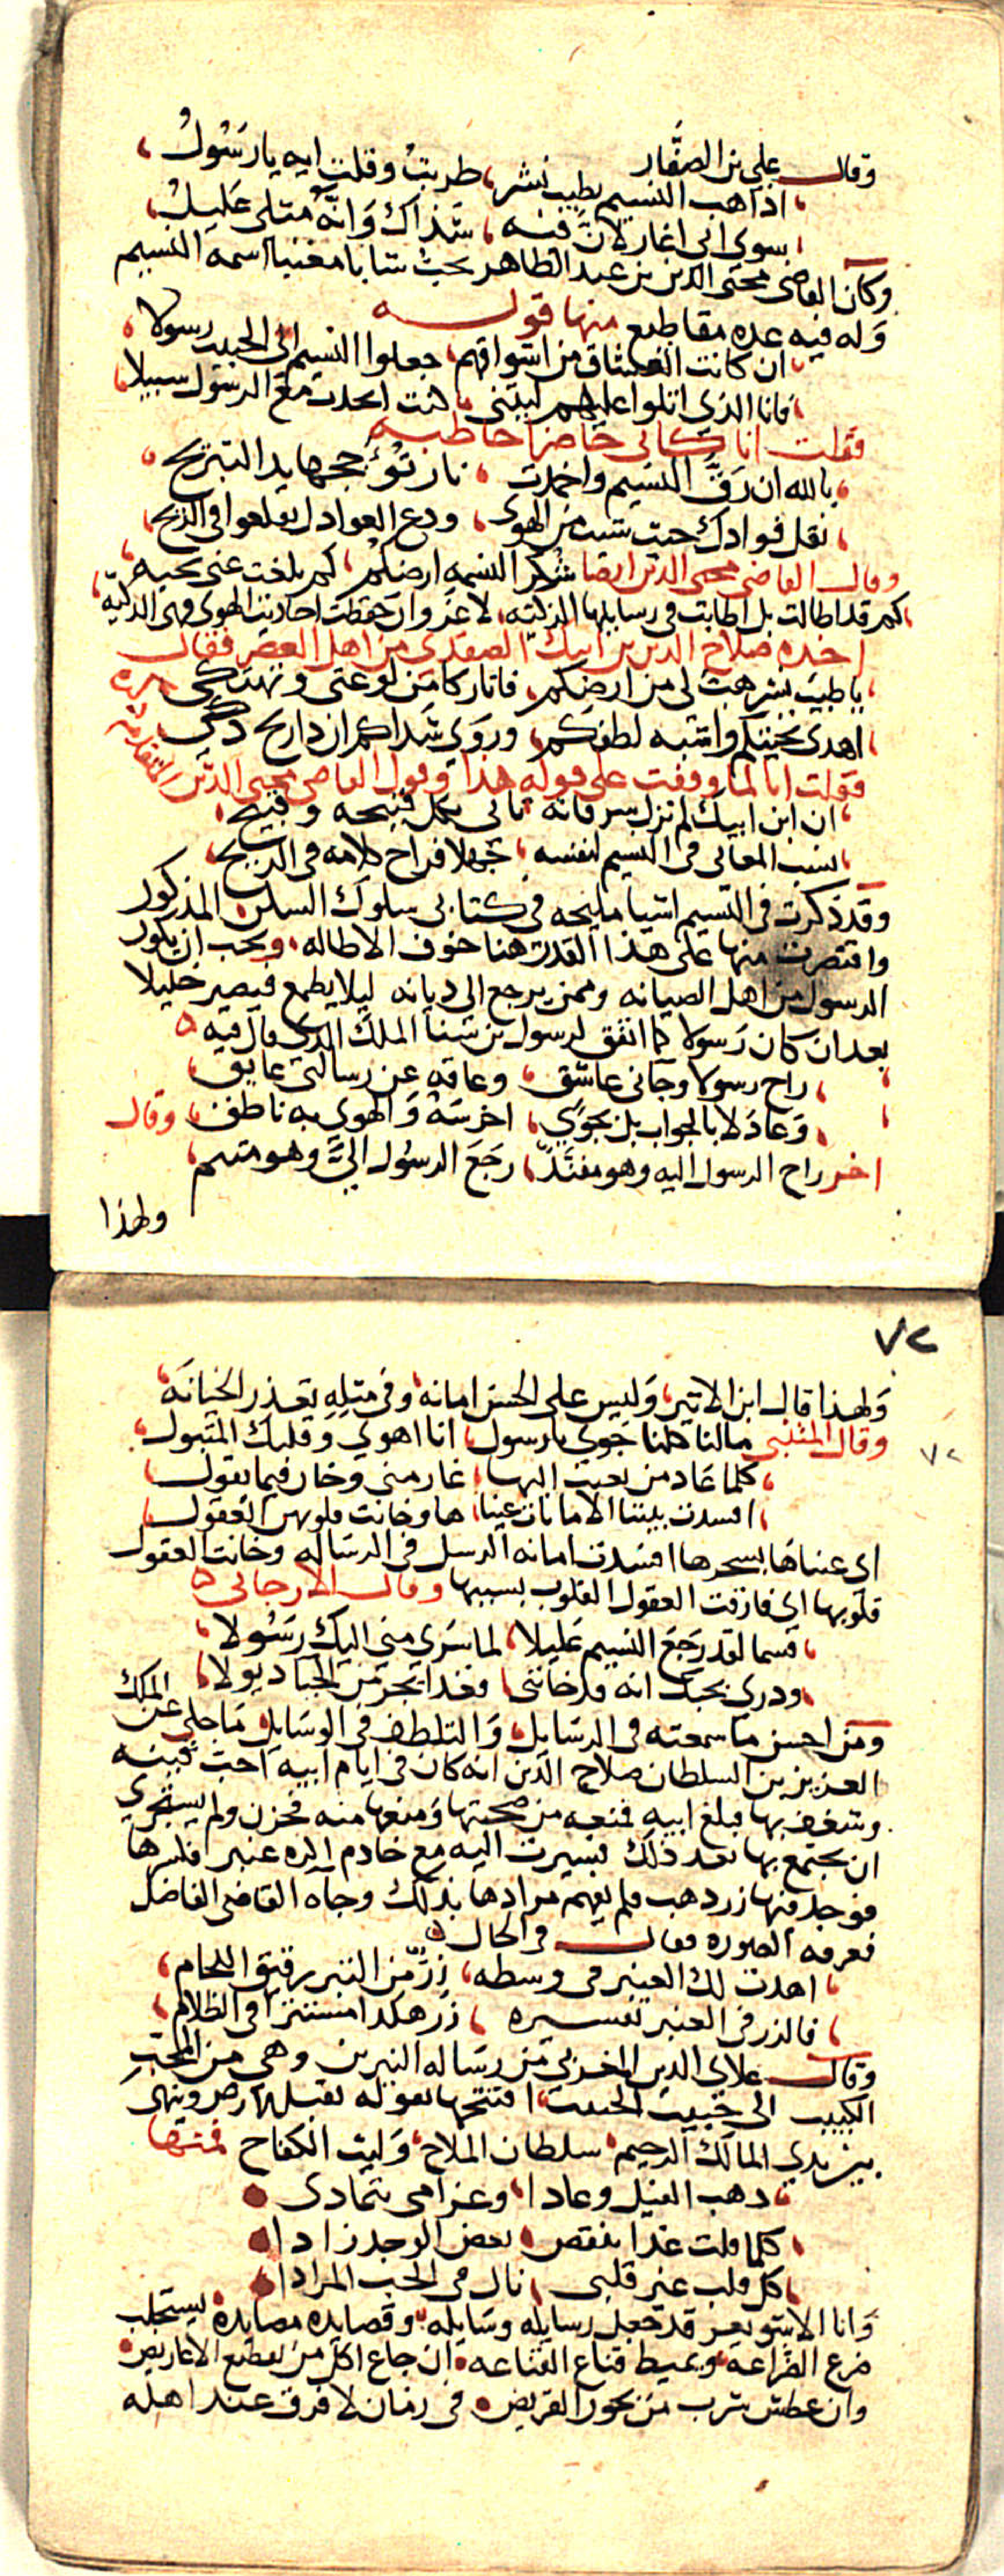 وقال على بن الصفار
اذا هب النسيم بطيب نشر، طربت وقلت ايه يا رسول،
سوى انى اغار لان فيه، شذاك وانه مثلى عليل،
وكان القاضى محيى الدين بن عبد الظاهر يحب شابا مغنيا اسمه النسيم
وله فيه عده مقاطيع منها قوله
ان كانت العشاق من اشواقهم، جعلوا النسيم الى الحبيب رسولا،
فانا الذى اتلوا عليهم ليتنى، كنت اتخذت مع الرسول سبيلا،
فقلت انا كانى حاضرا خاطبه
بالله ان رق النسيم واخمدت، نار تؤججها يد التبريح،
نقل فوادك حيث شيت من الهوى، ودع العواذل يقلعوا فى الريح،
وقال القاضى محيى الدين ايضا شكرا لنسمه ارضكم، كم بلغت عنى تحيه،
كم قد اطالت بل اطابت فى رسايلها الذكيه، لا غرو ان حفظت احاديث الهوى فهى الذكيه،
اخذه صلاح الدين بن ايبك الصفدى من اهل العصر فقال
يا طيب نشر هب لى من ارضكم، فاثار كامن لوعتى وتهتكى
اهدى تحيتكم واشبه لطفكم، وروى شذاكم ان ذا ريح ذكى
فقلت انا لما وقفت على قوله هذا وقول القاضى محيى الدين المتقدم
ان ابن ايبك لم تزل سرقاته تاتى بكل قبيحه وقبيح،
نسب المعانى فى النسيم لنفسه، جهلا فراح كلامه فى الريح،
وقد ذكرت فى النسيم اشيا مليحه فى كتابى سلوك السنن المذكور
واقتصرت منها على هذا القدر هنا خوف الاطاله، ويجب ان يكون
الرسول من اهل الصيانه وممن يرجع الى ديانه ليلا يطمع فيصير خليلا
بعد ان كان رسولا كما اتفق لرسول بن سنا الملك الذى قال فيه
راح رسولا وجانى عاشق، وعاقه عن رسالتى عايق،
وعاد لا بالجواب بل بجوى، اخرسه والهوى به ناطق، وقال
اخر راح الرسول اليه وهو مفند، رجع الرسول الى وهو متيم،
ولهذا
٧٢
ولهذا قال ابن الاثير، وليس على الحسن امانه، وفى مثله تعذر الخيانه،
وقال المتنبى مالنا كلنا جوى يا رسول، انا اهوى وقلبك المتبول،
٧٢
كلما عاد من بعثت اليها، غار منى وخان فيما يقول،
افسدت بيننا الامانات عينا، ها وخانت قلوبهن العقول،
اى عيناها بسحرها افسدت امانه الرسل فى الرساله وخانت العقول
قلوبها اى فارقت العقول القلوب بسببها وقال الارجانى
قسما لقد رجع النسيم عليلا، لما سرى منى اليك رسولا،
ودرى بحبك انه قد خاننى، فغدا يجر من الحيا ذيولا،
ومن احسن ما سمعته فى الرسايل، والتلطف فى الوسايل ما حكى عن الملك
العزيز بن السلطان صلاح الدين انه كان فى ايام ابيه احب قينه
وشغف بها فبلغ ابيه فمنعه من صحبتها ومنعها منه فحزن ولم يستجرى
ان يجتمع بها بعد ذلك فسيرت اليه مع خادم اكره عنبر فكسرها
فوجد فيها زر ذهب فلم يفهم مرادها بذلك وجاه القاضى الفاضل
فعرفه الصوره فقال فى الحال
اهدت لك العنبر فى وسطه، زر من التبر رقيق اللحام،
فالزر فى العنبر تفسيره، زر هكذا مستترا فى الظلام،
وقال علاى الدين المغربى من رساله النيرين وهى من المحب
الكييب الى حبيب الحبيب، افتتحها بقوله يقبل الارض وينهى
بين يدى المالك الرحيم، سلطان الملاح، وليث الكفاح فمنها
ذهب الفيل وعادا، وغرامى يتمادى
كلما قلت غدا ينقص، بعض الوجد زادا
كل قلب غير قلبى، نال فى الحب المرادا
وانا قد جعل رسايله وسايله، وقصايده مصايده، يستحلب
ضرع الضراعه، ويميط قناع القناعه، ان جاع اكل من يقطيع الاعاريض
وان عطش شرب من بحور القريض، فى زمان لا فرق عند اهله